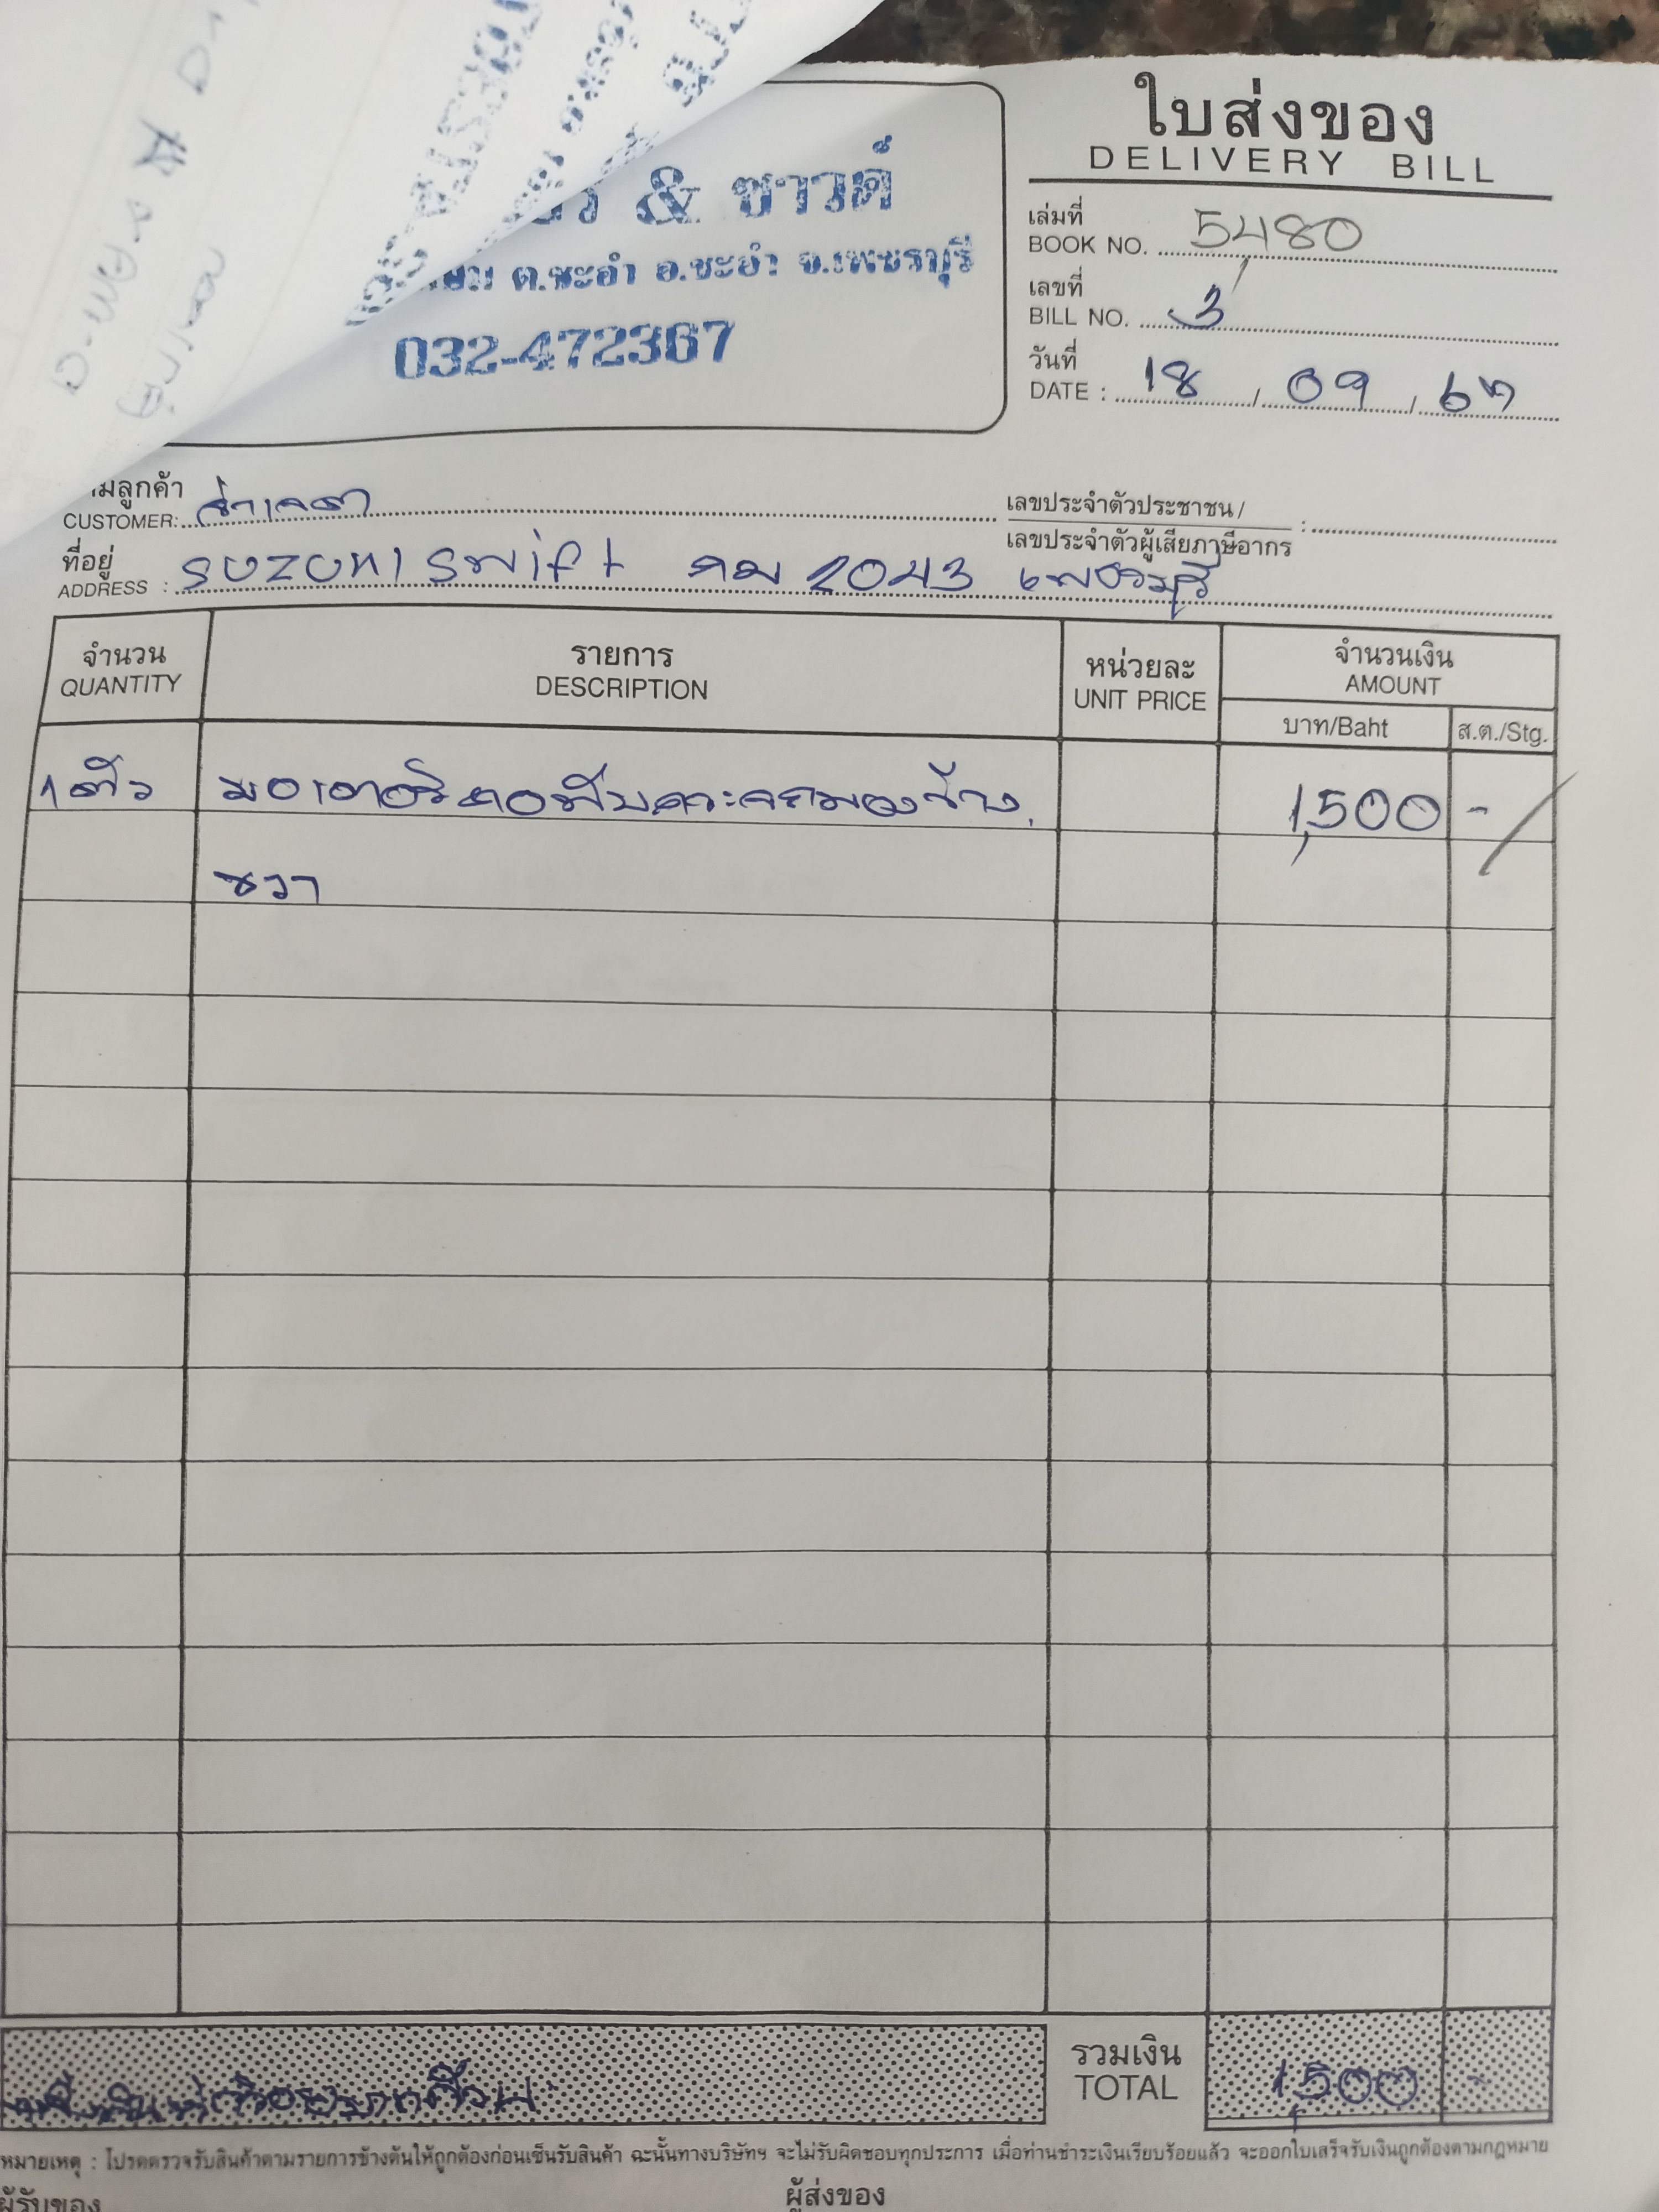 ใบส่งของ
DELIVERY BILL
& ซาวด์
ต.ชะอำ อ.ชะอำ จ.เพชรบุรี
032-472367
เล่มที่
BOOK NO. 5,480
เลขที่
BILL NO. 3
วันที่
DATE : 18 / 09 / 67
ลูกค้า
CUSTOMER:
เลขประจำตัวประชาชน /
เลขประจำตัวผู้เสียภาษีอากร :
ที่อยู่
ADDRESS : SUZUKI Swift 2043 เพชรบุรี
จำนวน รายการ หน่วยละ จำนวนเงิน
QUANTITY DESCRIPTION UNIT PRICE AMOUNT
บาท/Baht ส.ต./Stg.
1 ตัว มอเตอร์ พับกระจกมองข้าง 1,500 -
ขวา
รวมเงิน
TOTAL 1,500 -
หนึ่งพันห้าร้อยบาทถ้วน
หมายเหตุ : โปรดตรวจรับสินค้าตามรายการข้างต้นให้ถูกต้องก่อนเซ็นรับสินค้า ฉะนั้นทางบริษัทฯ จะไม่รับผิดชอบทุกประการ เมื่อท่านชำระเงินเรียบร้อยแล้ว จะออกใบเสร็จรับเงินถูกต้องตามกฎหมาย
ผู้รับของ ผู้ส่งของ